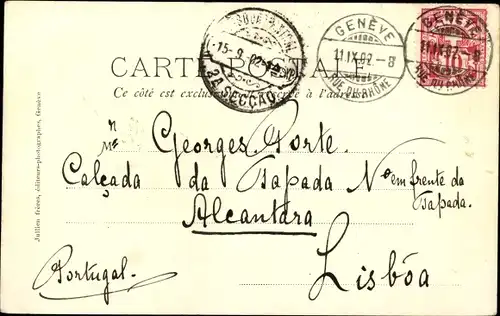 GENÈVE
11.IX.02 - 8
RUE DU RHÔNE
GENÈVE
11.IX.02 - 8
RUE DU RHÔNE
10
15-9-02
2A SECÇÃO
CARTE POSTALE
Ce côté est exclusivement réservé à l'adresse
Mr Georges Porte.
Calçada da Tapada No em frente da Tapada.
Alcantara
Lisbôa
Portugal.
Jullien frères, éditeurs-photographes, Genève